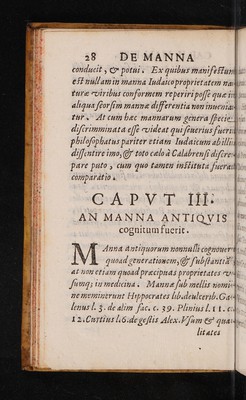 28 DE MANNA
conducit, & potui. Ex quibus manifestum
est nullam in manna Iudaico proprietatem na
turæ viribus conformem reperiri posse quæ in
aliqua seorsim mannæ differentia non inuenia
tur. At cum hæc mannarum genera specie
discrimminata esse videat qui seuerius fuerit
philosophatus pariter etiam Iudaicum ab illis
dissentire imo, & toto cælo à Calabrensi discre
pare puto, cum quo tamen instituta fuerat
comparatio.
CAPVT III.
AN MANNA ANTIQVIS
cognitum fuerit.
MAnna antiquorum nonnulli cognouer
quoad generationem, & substantiã
at non etiam quoad præcipuas proprietates v-
sumq; in medicina. Mannæ sub mellis nomi-
ne meminerunt Hippocrates lib. de vlcerib. Ga-
lenus l. 3. de alim fac. c. 39. Plinius l. 11. c.
12. Curtius l. 6. de gestis Alex. Vsum & qua-
litates